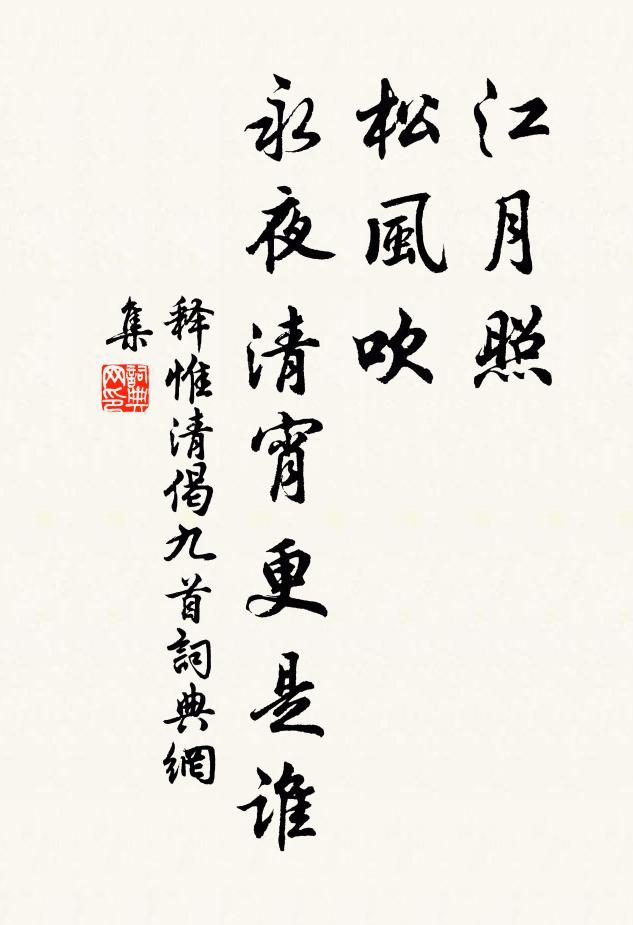 江月照
松風吹
永夜清宵更是誰
释惟清偈九首詞典網
集
詞典
网印